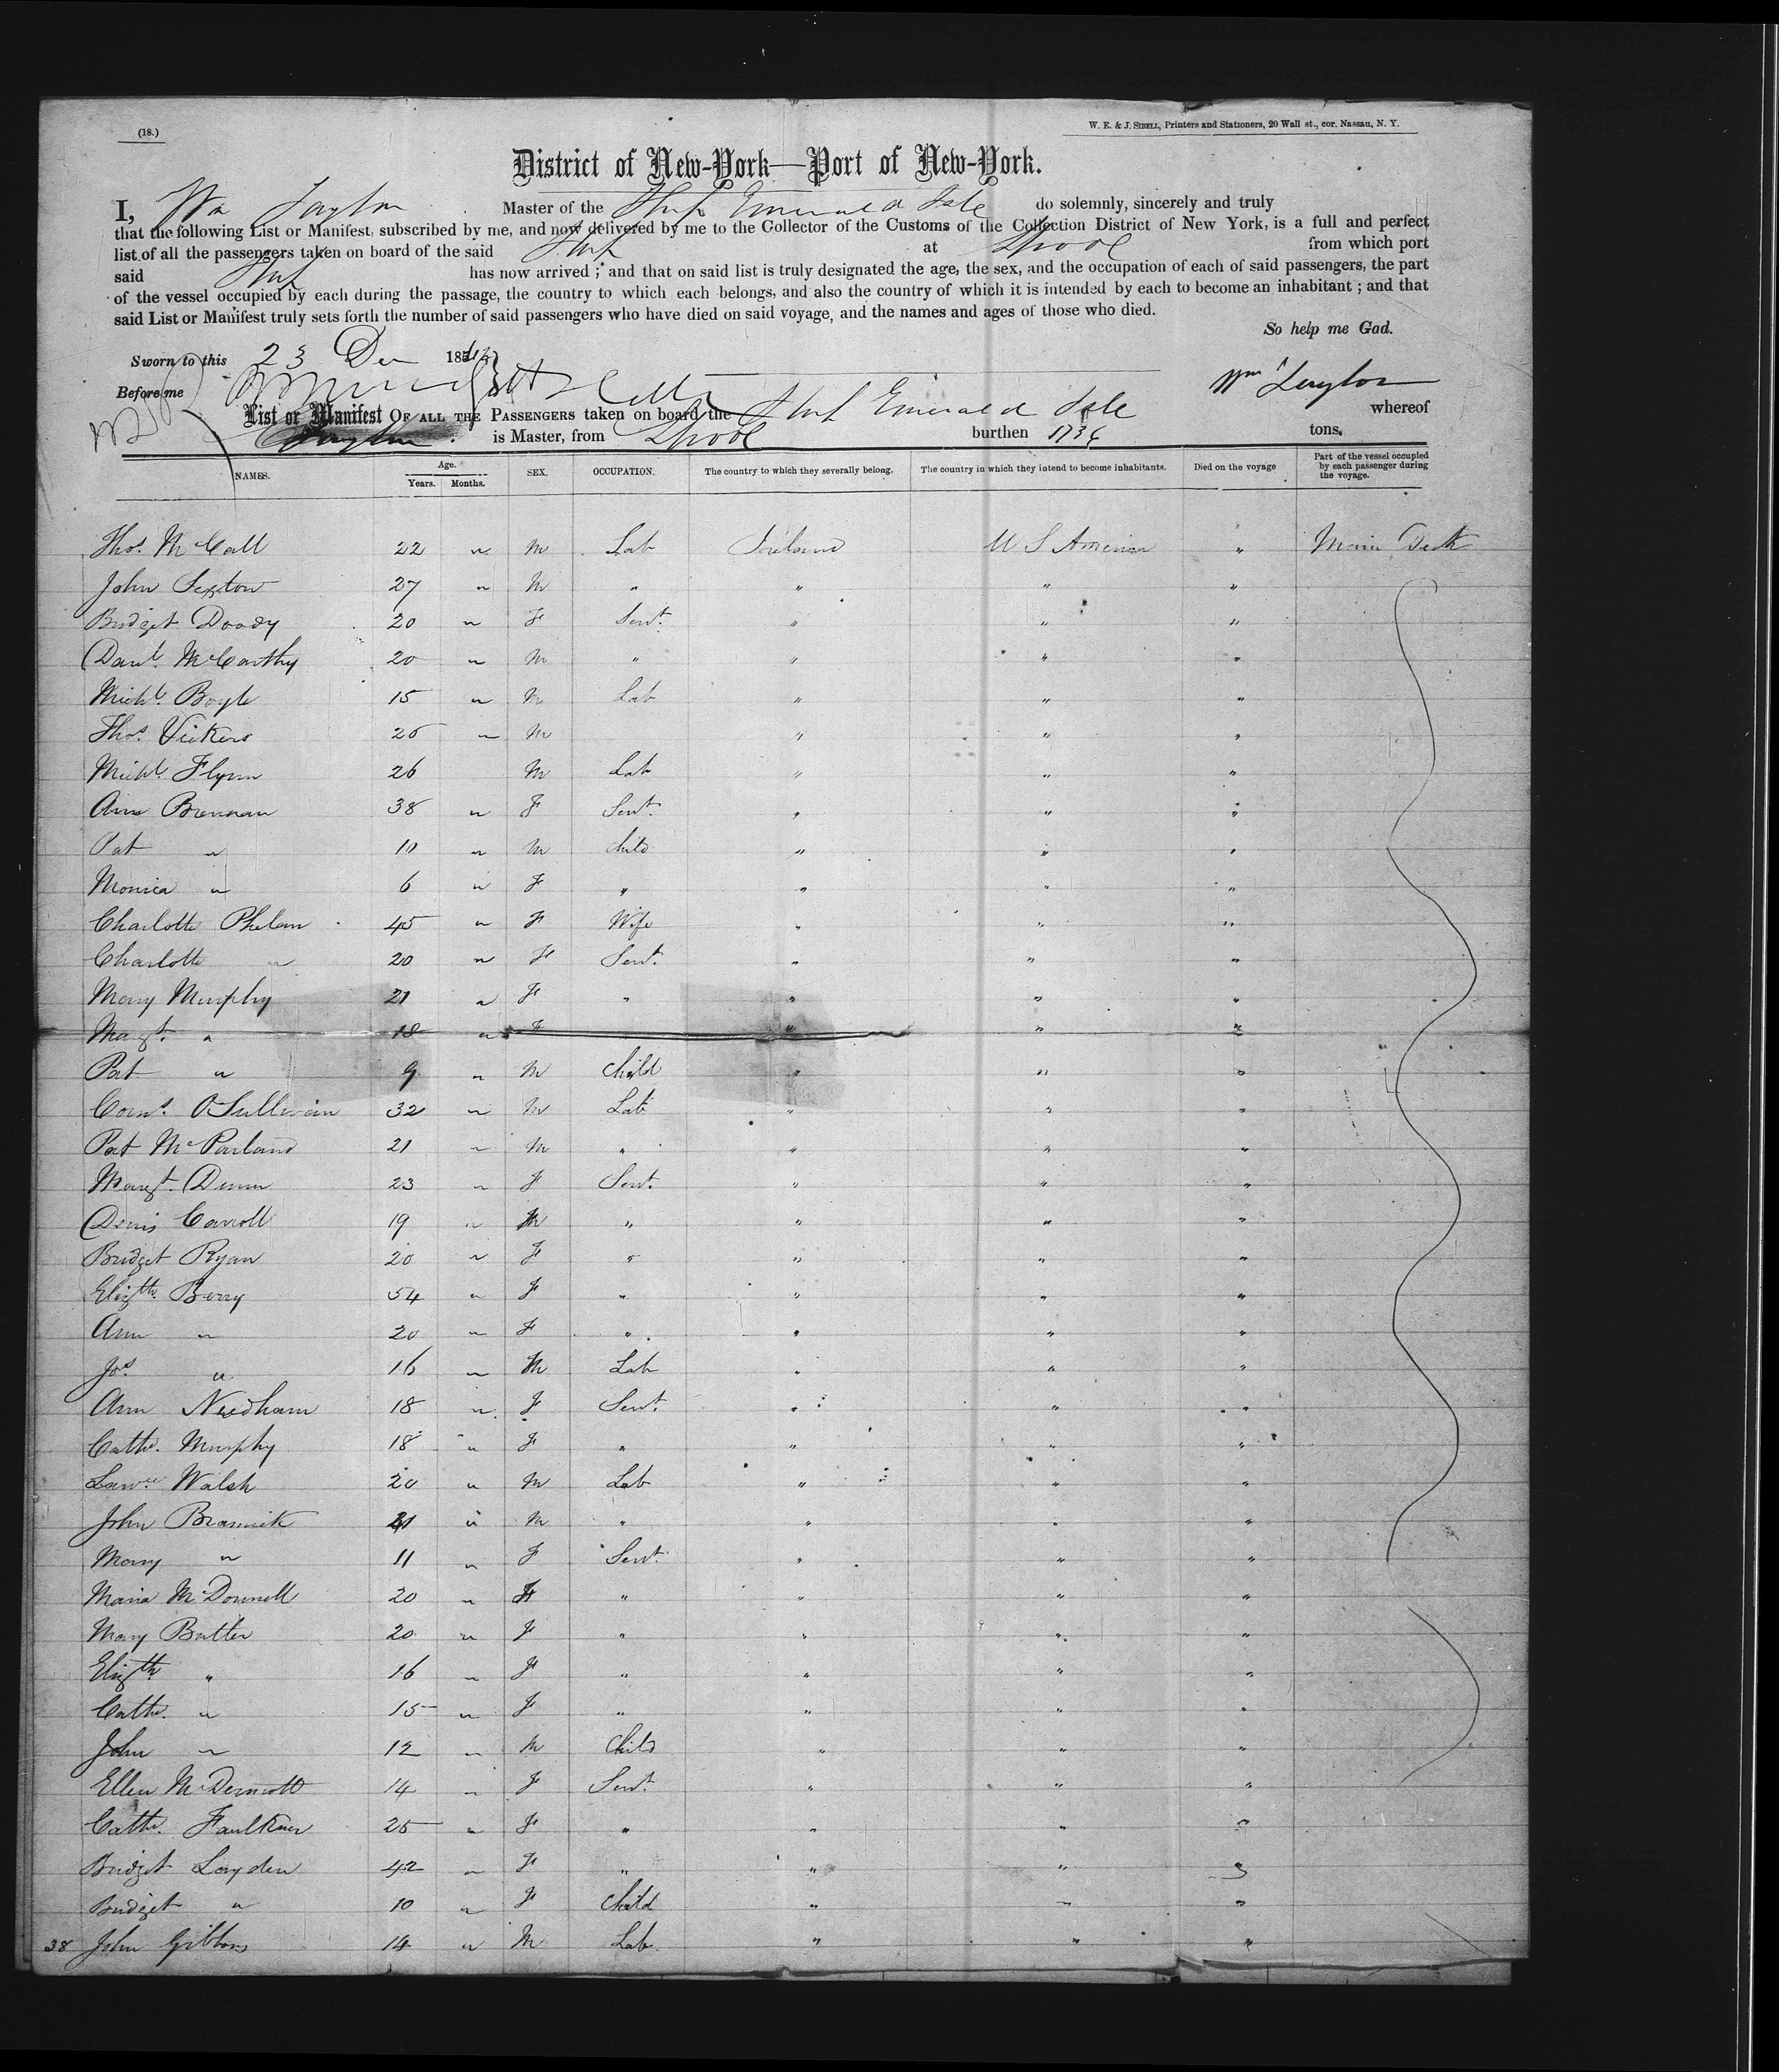 (18.)
W. E. & J. SIBELL, Printers and Stationers, 20 Wall st., cor. Nassau, N. Y.
District of New-York—Port of New-York.
I, Wm Layton Master of the Ship Emerald Isle do solemnly, sincerely and truly
that the following List or Manifest, subscribed by me, and now delivered by me to the Collector of the Customs of the Collection District of New York, is a full and perfect
list of all the passengers taken on board of the said Ship at Lpool from which port
said Ship has now arrived; and that on said list is truly designated the age, the sex, and the occupation of each of said passengers, the part
of the vessel occupied by each during the passage, the country to which each belongs, and also the country of which it is intended by each to become an inhabitant; and that
said List or Manifest truly sets forth the number of said passengers who have died on said voyage, and the names and ages of those who died.
So help me Gad.
Sworn to this 23 Der 185
Before me
Wm Layton
List or Manifest OF ALL THE PASSENGERS taken on board the Ship Emerald Isle whereof
Layton is Master, from Lpool burthen 1736 tons.
NAMES. Age. Years. Months. SEX. OCCUPATION. The country to which they severally belong. The country in which they intend to become inhabitants. Died on the voyage Part of the vessel occupied by each passenger during the voyage.
Thos. McCall 22 " M Lab Ireland U S America " Main Deck
John Sexton 27 " M " " " "
Bridget Doody 20 " F Servt. " " "
Danl. McCarthy 20 " M " " " "
Michl. Boyle 15 " M Lab " " "
Thos. Vickers 25 " M " " "
Michl. Flynn 26 M Lab " " "
Ann Brennan 38 " F Servt. " " "
Pat " 10 " M Child " " "
Monica " 6 " F " " " "
Charlotte Phelan 45 " F Wife " " "
Charlotte " 20 " F Servt. " " "
Mary Murphy 21 " F " " " "
Margt. " 18 " F " " "
Pat " 9 " M Child " " "
Corns. O'Sullivan 32 " M Lab " " "
Pat McParland 21 " M " " " "
Margt. Dunn 23 " F Servt. " " "
Denis Carroll 19 " M " " " "
Bridget Ryan 20 " F " " " "
Elizth. Berry 54 " F " " " "
Ann " 20 " F " " " "
Jos. " 16 " M Lab " " "
Ann Needham 18 " F Servt. " " "
Cathe. Murphy 18 " F " " " "
Lawce. Walsh 20 " M Lab " " "
John Brannick 21 " M " " " "
Mary " 11 " F Servt. " " "
Maria McDonnell 20 " F " " " "
Mary Butler 20 " F " " " "
Elizth. " 16 " F " " " "
Cathe. " 15 " F " " " "
John " 12 " M Child " " "
Ellen McDermott 14 " F Servt. " " "
Cathe. Faulkner 25 " F " " " "
Bridget Layden 42 " F " " " "
Bridget " 10 " F Child " " "
38 John Gibbons 14 " M Lab " " "